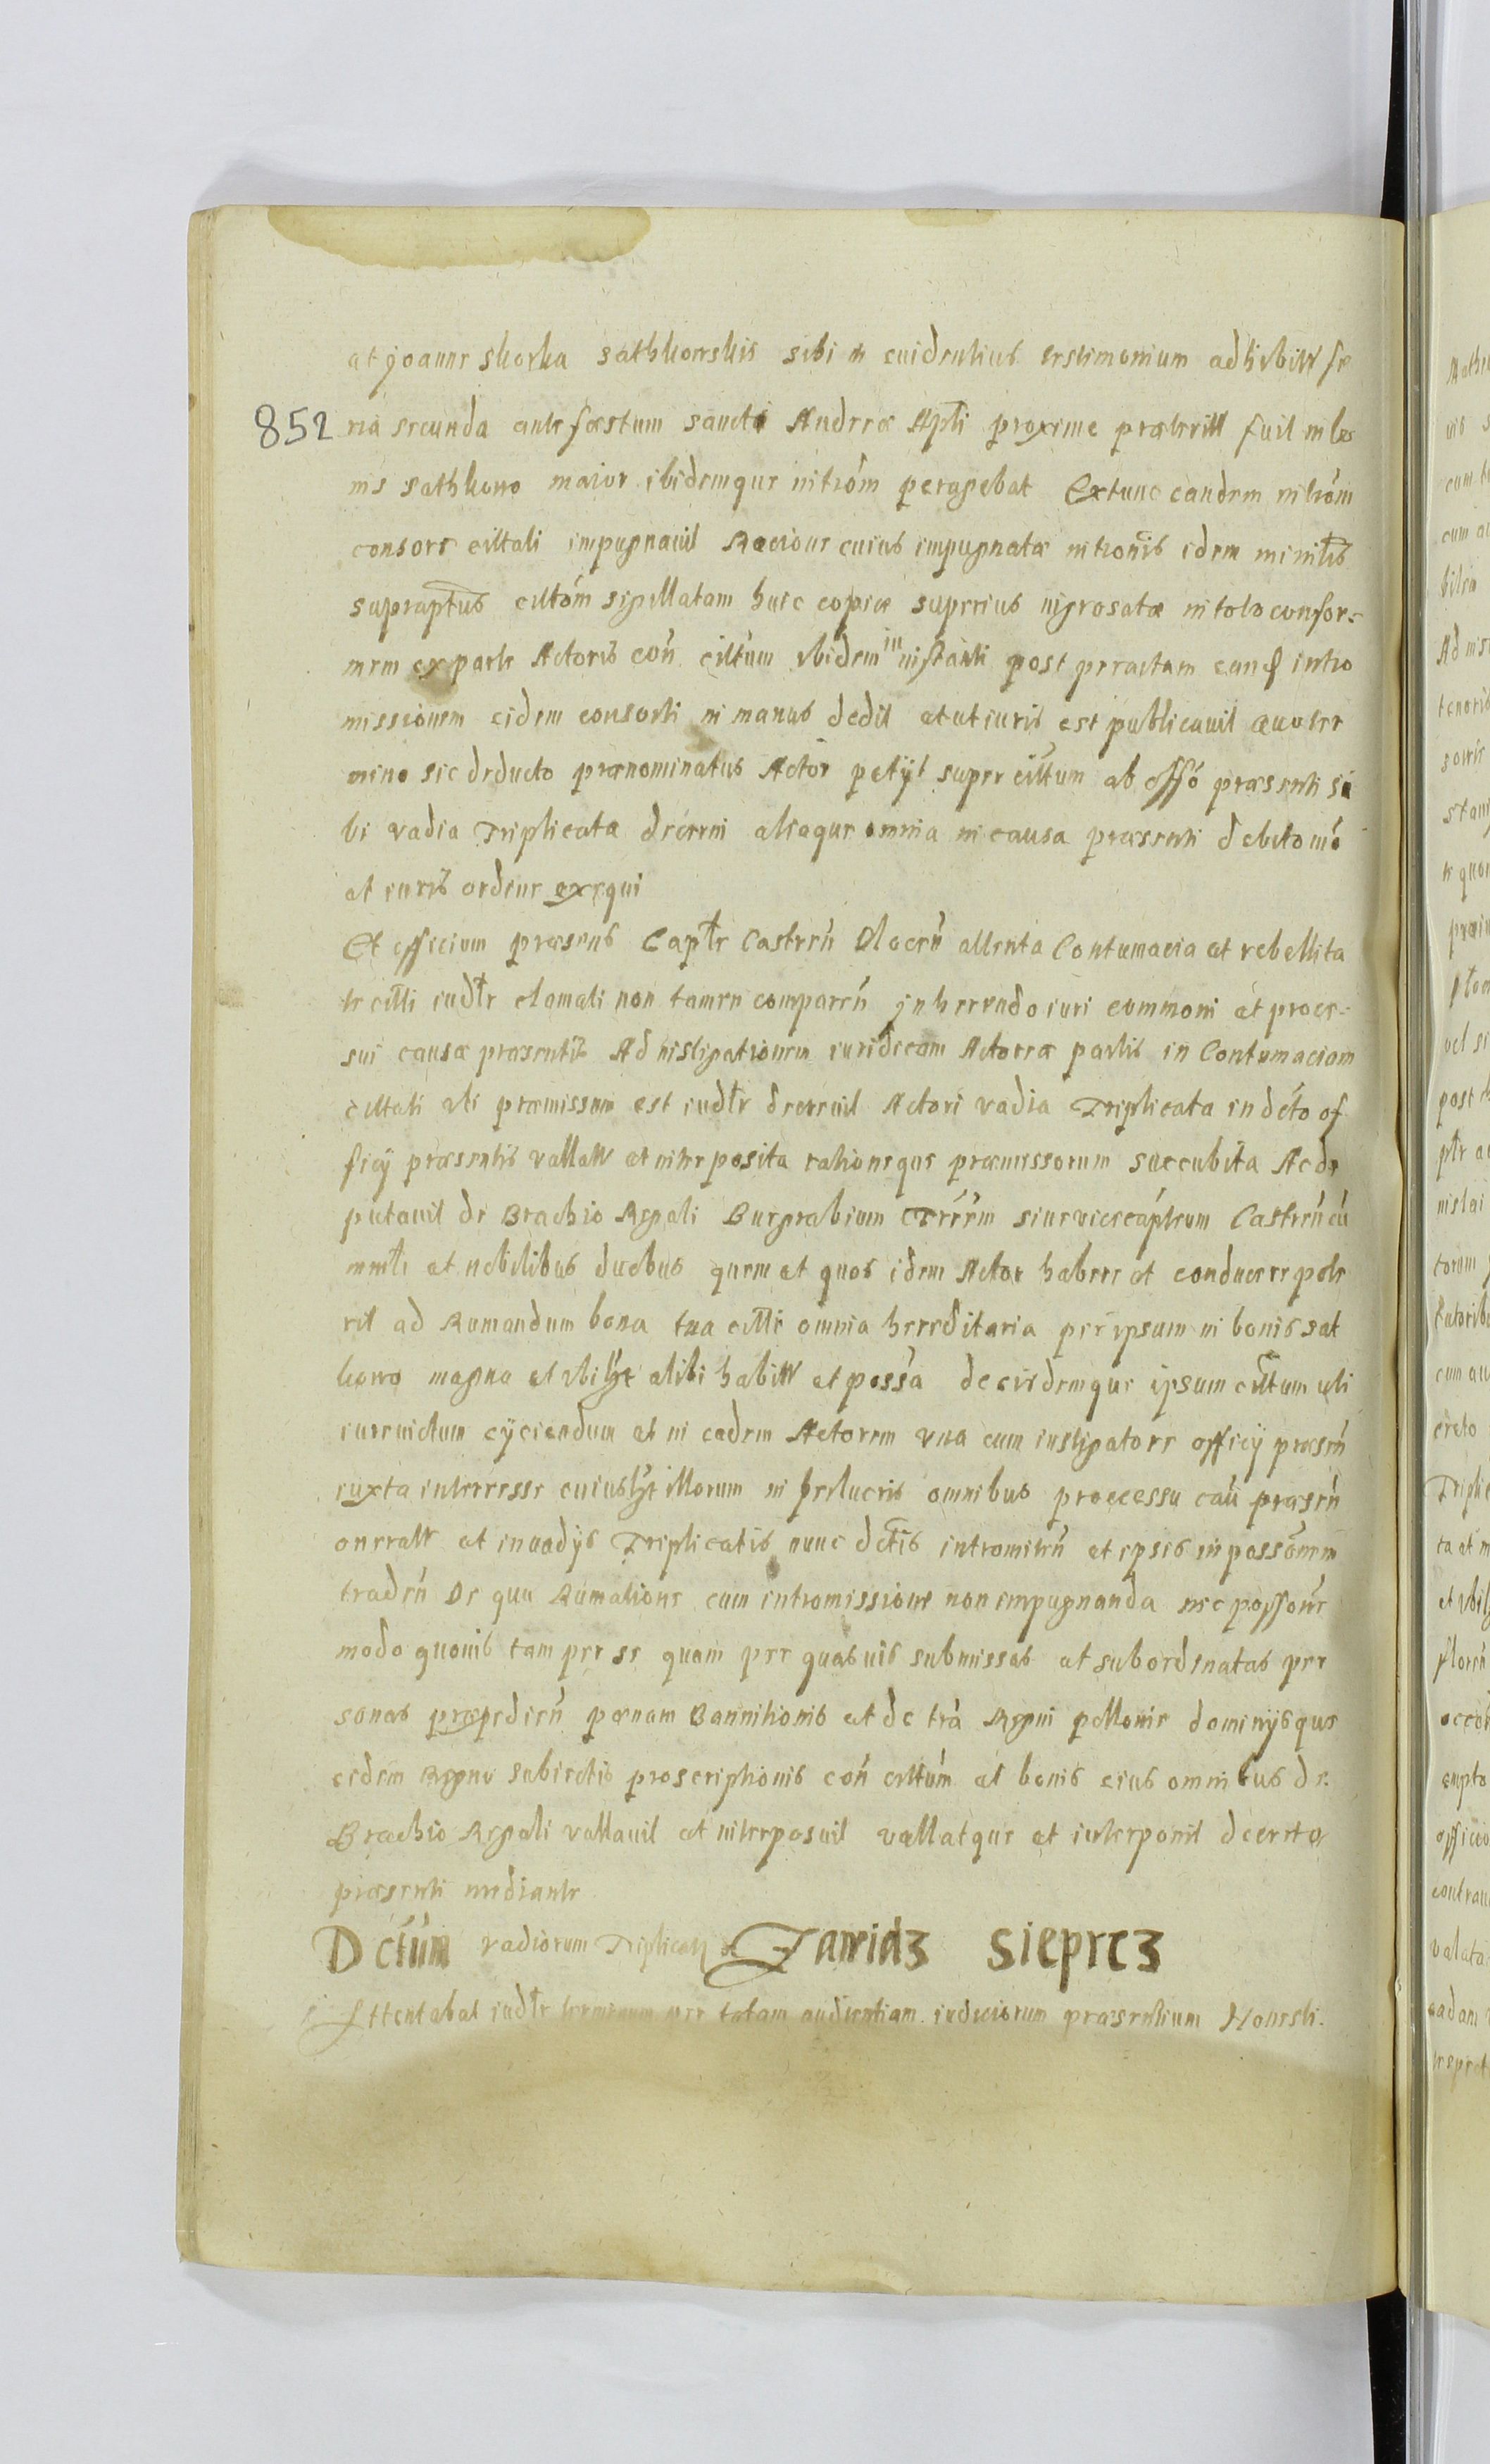 at joanne skorka sathkowskis sibi in euidentius testimonium adhibitis fe
852 ria secunda ante fæstum sancti Andreæ Apti proxime præteriti fuit in bo
nis sathkowo maior ibidemque intrōm peragebat Extunc eandem intrōm
consors cittati impugnauit Racione cuius impugnatæ intronis idem ministr̄
supraptus cittōm sigillatam huic copiæ superius ingrosatæ in toto confor-
mem ex parte Actoris con̄ cittum ibidem in instanti post peractam eand intro
missionem eidem consorti in manus dedit et ut iuris est publicauit quo ter
mino sic deducto prænominatus Actor petyt super cittum ab offo præsenti si
bi vadia Triplicata decerni aliaque omnia in causa præsenti debito mō
et iuris ordine exequi
Et officium præsens Captr Castren̄ Plocen̄ attenta Contumacia et rebellita
te citti iudtr clamati non tamen comparen̄ jnherendo iuri commoni et proces-
sui causæ præsentis Ad instigationem iuridecam Actoreæ partis in Contumaciam
cittati vti præmissum est iudtr decreuit Actori vadia Triplicata in dcto of
ficij præsentis vallata et interposita rationeque præmissorum succubita Ac de
putauit de Brachio Regali Burgrabium Trrm siue vicecaptreum Castren̄ cū
mntr et nobilibus duobus quem et quos idem Actor habere et conducere pote
rit ad Rumandum bona tua citti omnia hereditaria per ipsum in bonis sat
kowo magno et vbilzt alibi habitt et possa de eisdemque ipsum cittum vti
iureuictum eyciendum et in eadem Actorem vna cum instigatore officij præsen̄
iuxta interresse cuiuslzt illorum in perlucris omnibus processu cau præsen̄
oneratt et invadys Triplicatis nunc dctis intromitten̄ et ipsis in possonem
traden̄ De qua Rumatione cum intromissione non impugnanda nec possone
modo quouis tam per se quam per quasuis submissas et subordinatas per
sonas præpedien̄ pænam Bannitionis et de tra Regni pollonie dominijsque
eidem Regno subiectis proscriptionis con̄ cittum et bonis eius omnibus de
Brachio Regali vallauit et interposuit vallatque et interponit decreto
præsenti mediante
Dctum vadiorum Triplicatȝ Zawidz sieprcz
Attentabat iudtr terminum per totam audientiam iudiciorum præsentium Honesti.